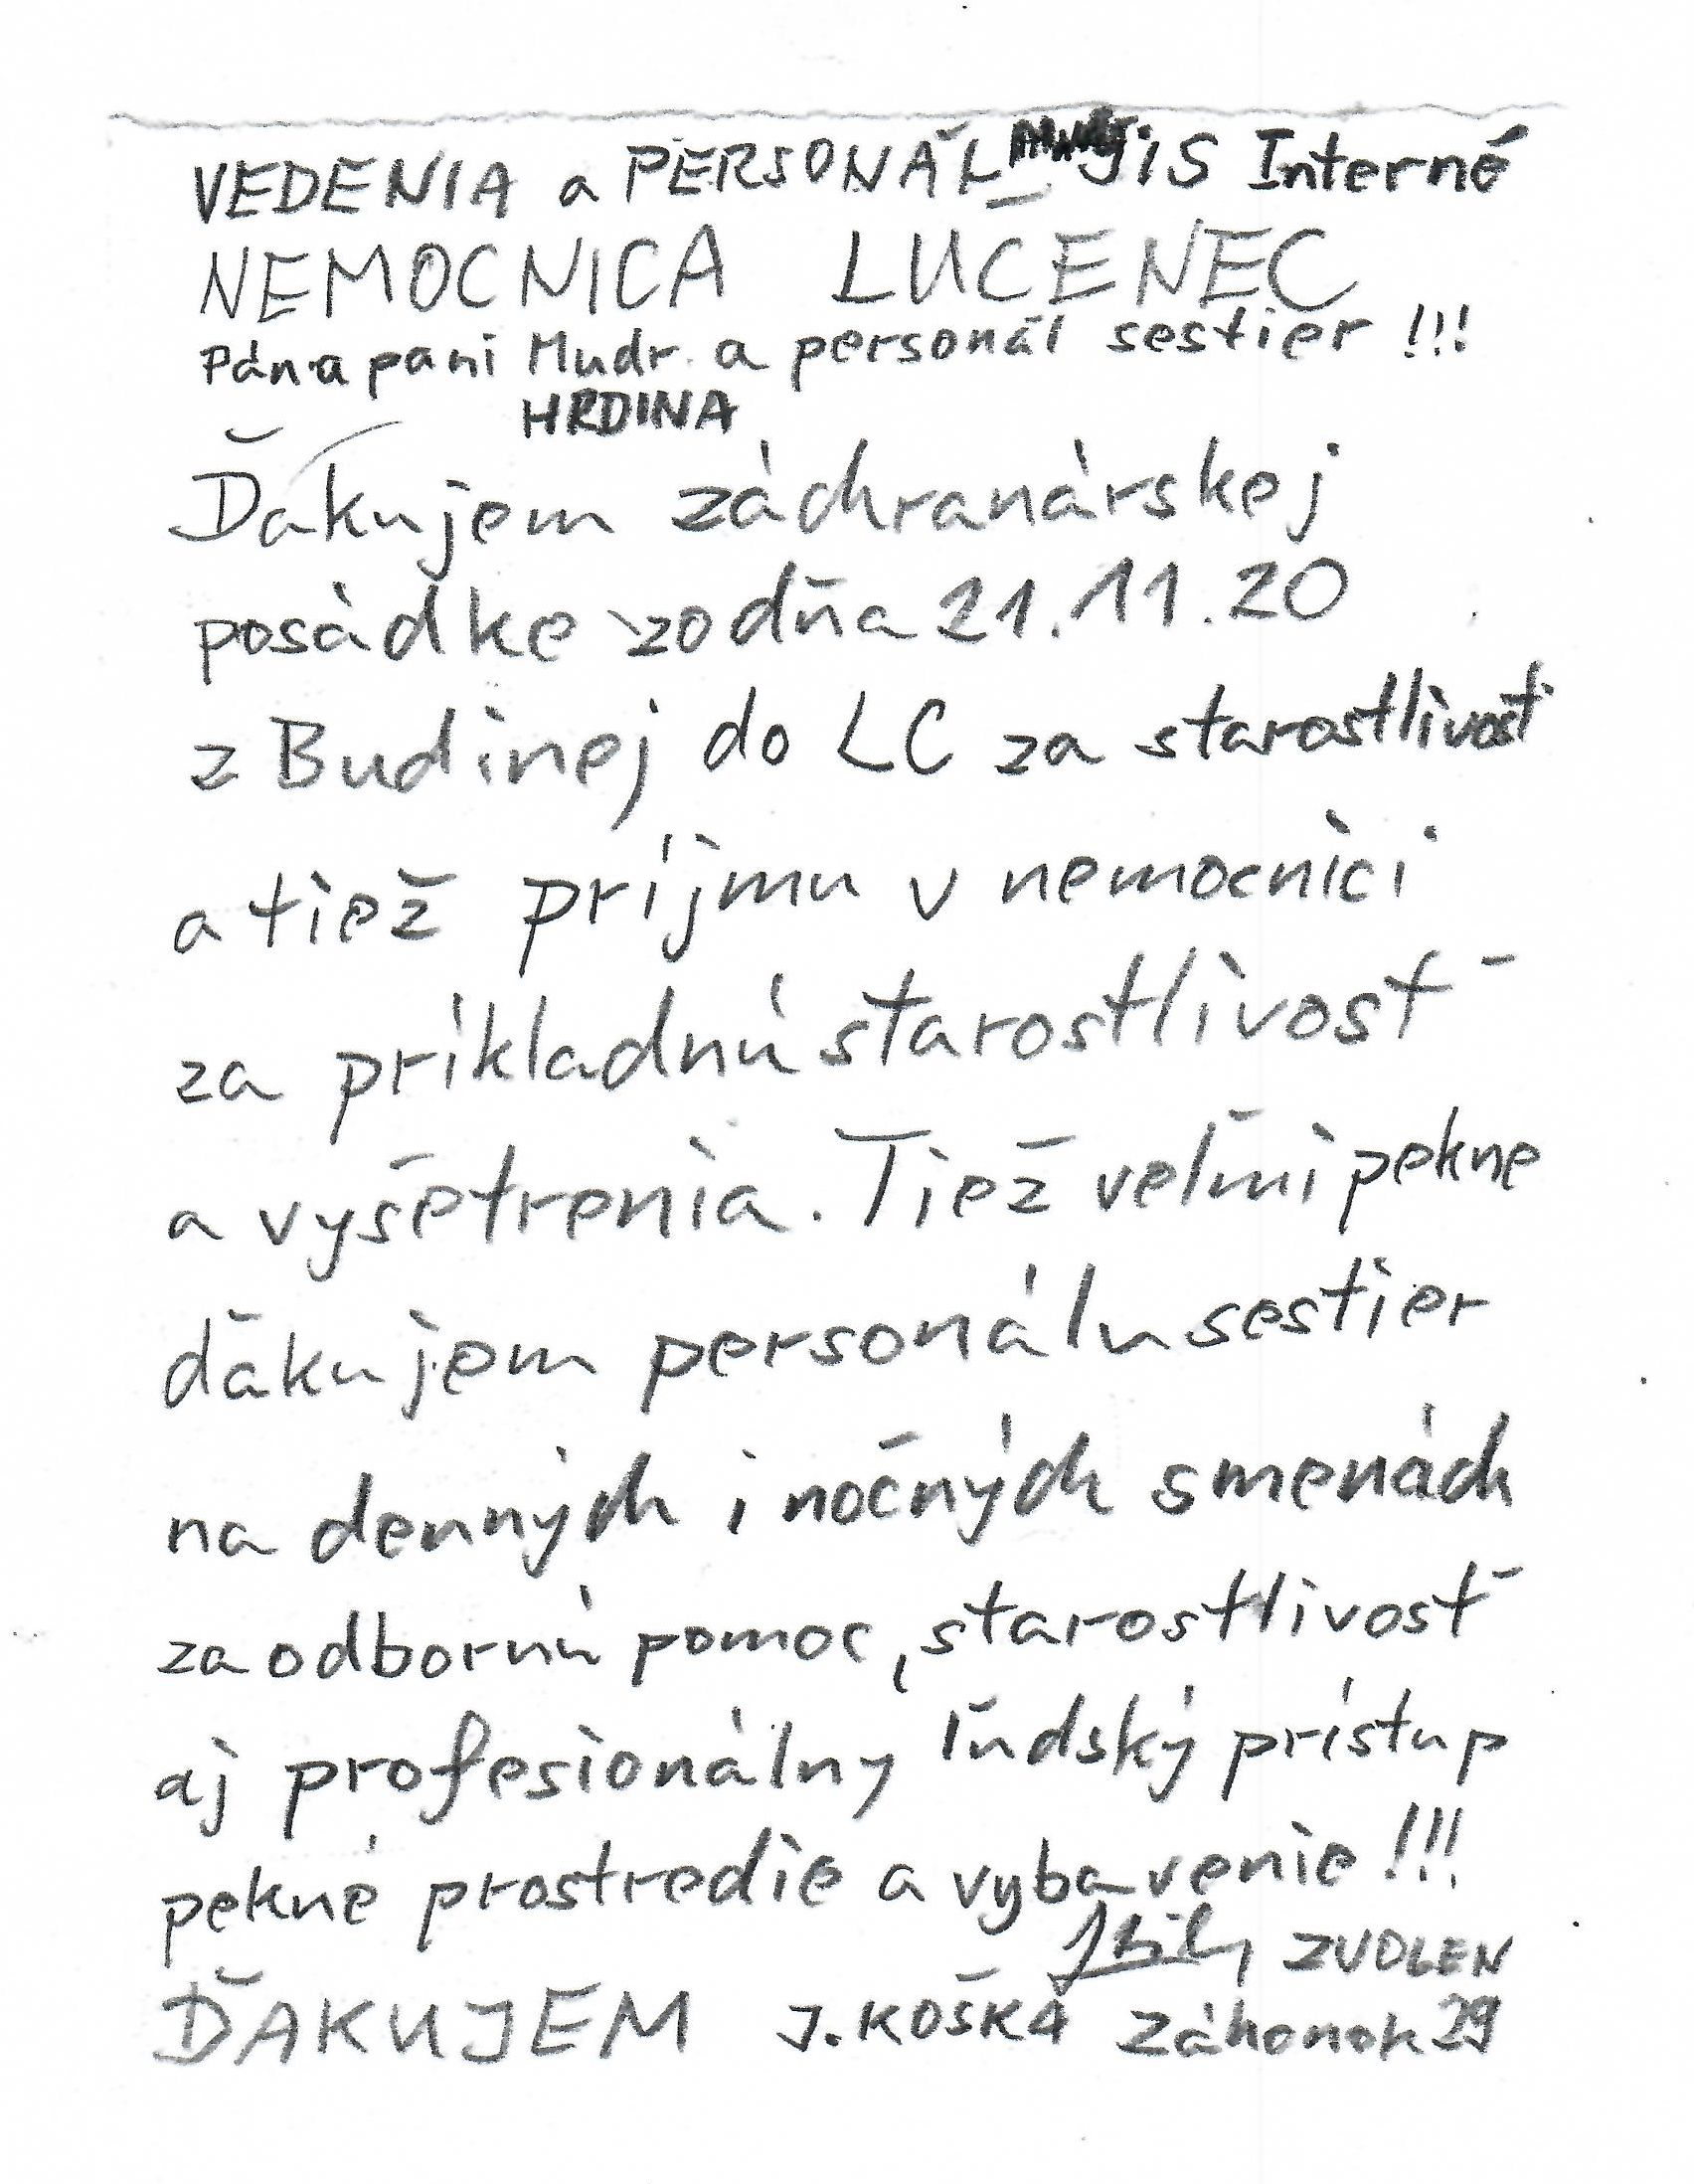 VEDENIA a PERSONÁL JIS Interné
NEMOCNICA LUČENEC
Pán a pani Mudr. a personál sestier !!!
HRDINA
Ďakujem záchranárskej
posádke zo dňa 21.11.20
z Budinej do LC za starostlivosť
a tiež príjmu v nemocnici
za príkladnú starostlivosť
a vyšetrenia. Tiež veľmi pekne
ďakujem personálu sestier
na denných i nočných smenách
za odbornú pomoc, starostlivosť
aj profesionálny ľudský prístup
pekné prostredie a vybavenie !!!
ZVOLEN
ĎAKUJEM J. KOŠKA Záhonok 29